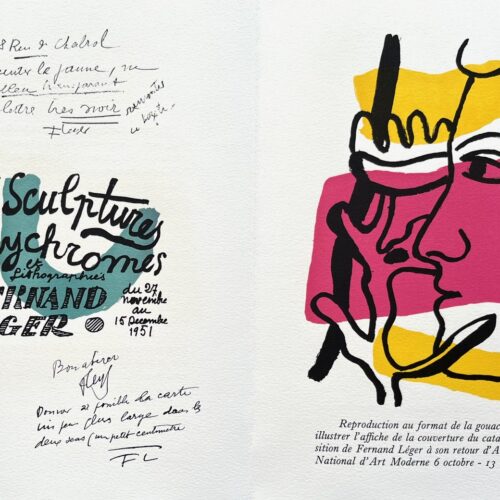 8 Rue de Chabrol
le jaune, un
bleu transparent
lettre très noir
Sculptures
ychromes
et
lithographies
ERNAND
GER
du 27
novembre
au
15 Decembre
1951
Bon à tirer
Donner si possible la carte
un peu plus large dans les
deux sens (un petit centimètre
FL
Reproduction au format de la gouac
illustrer l'affiche de la couverture du cata
sition de Fernand Léger à son retour d'A
National d'Art Moderne 6 octobre - 13